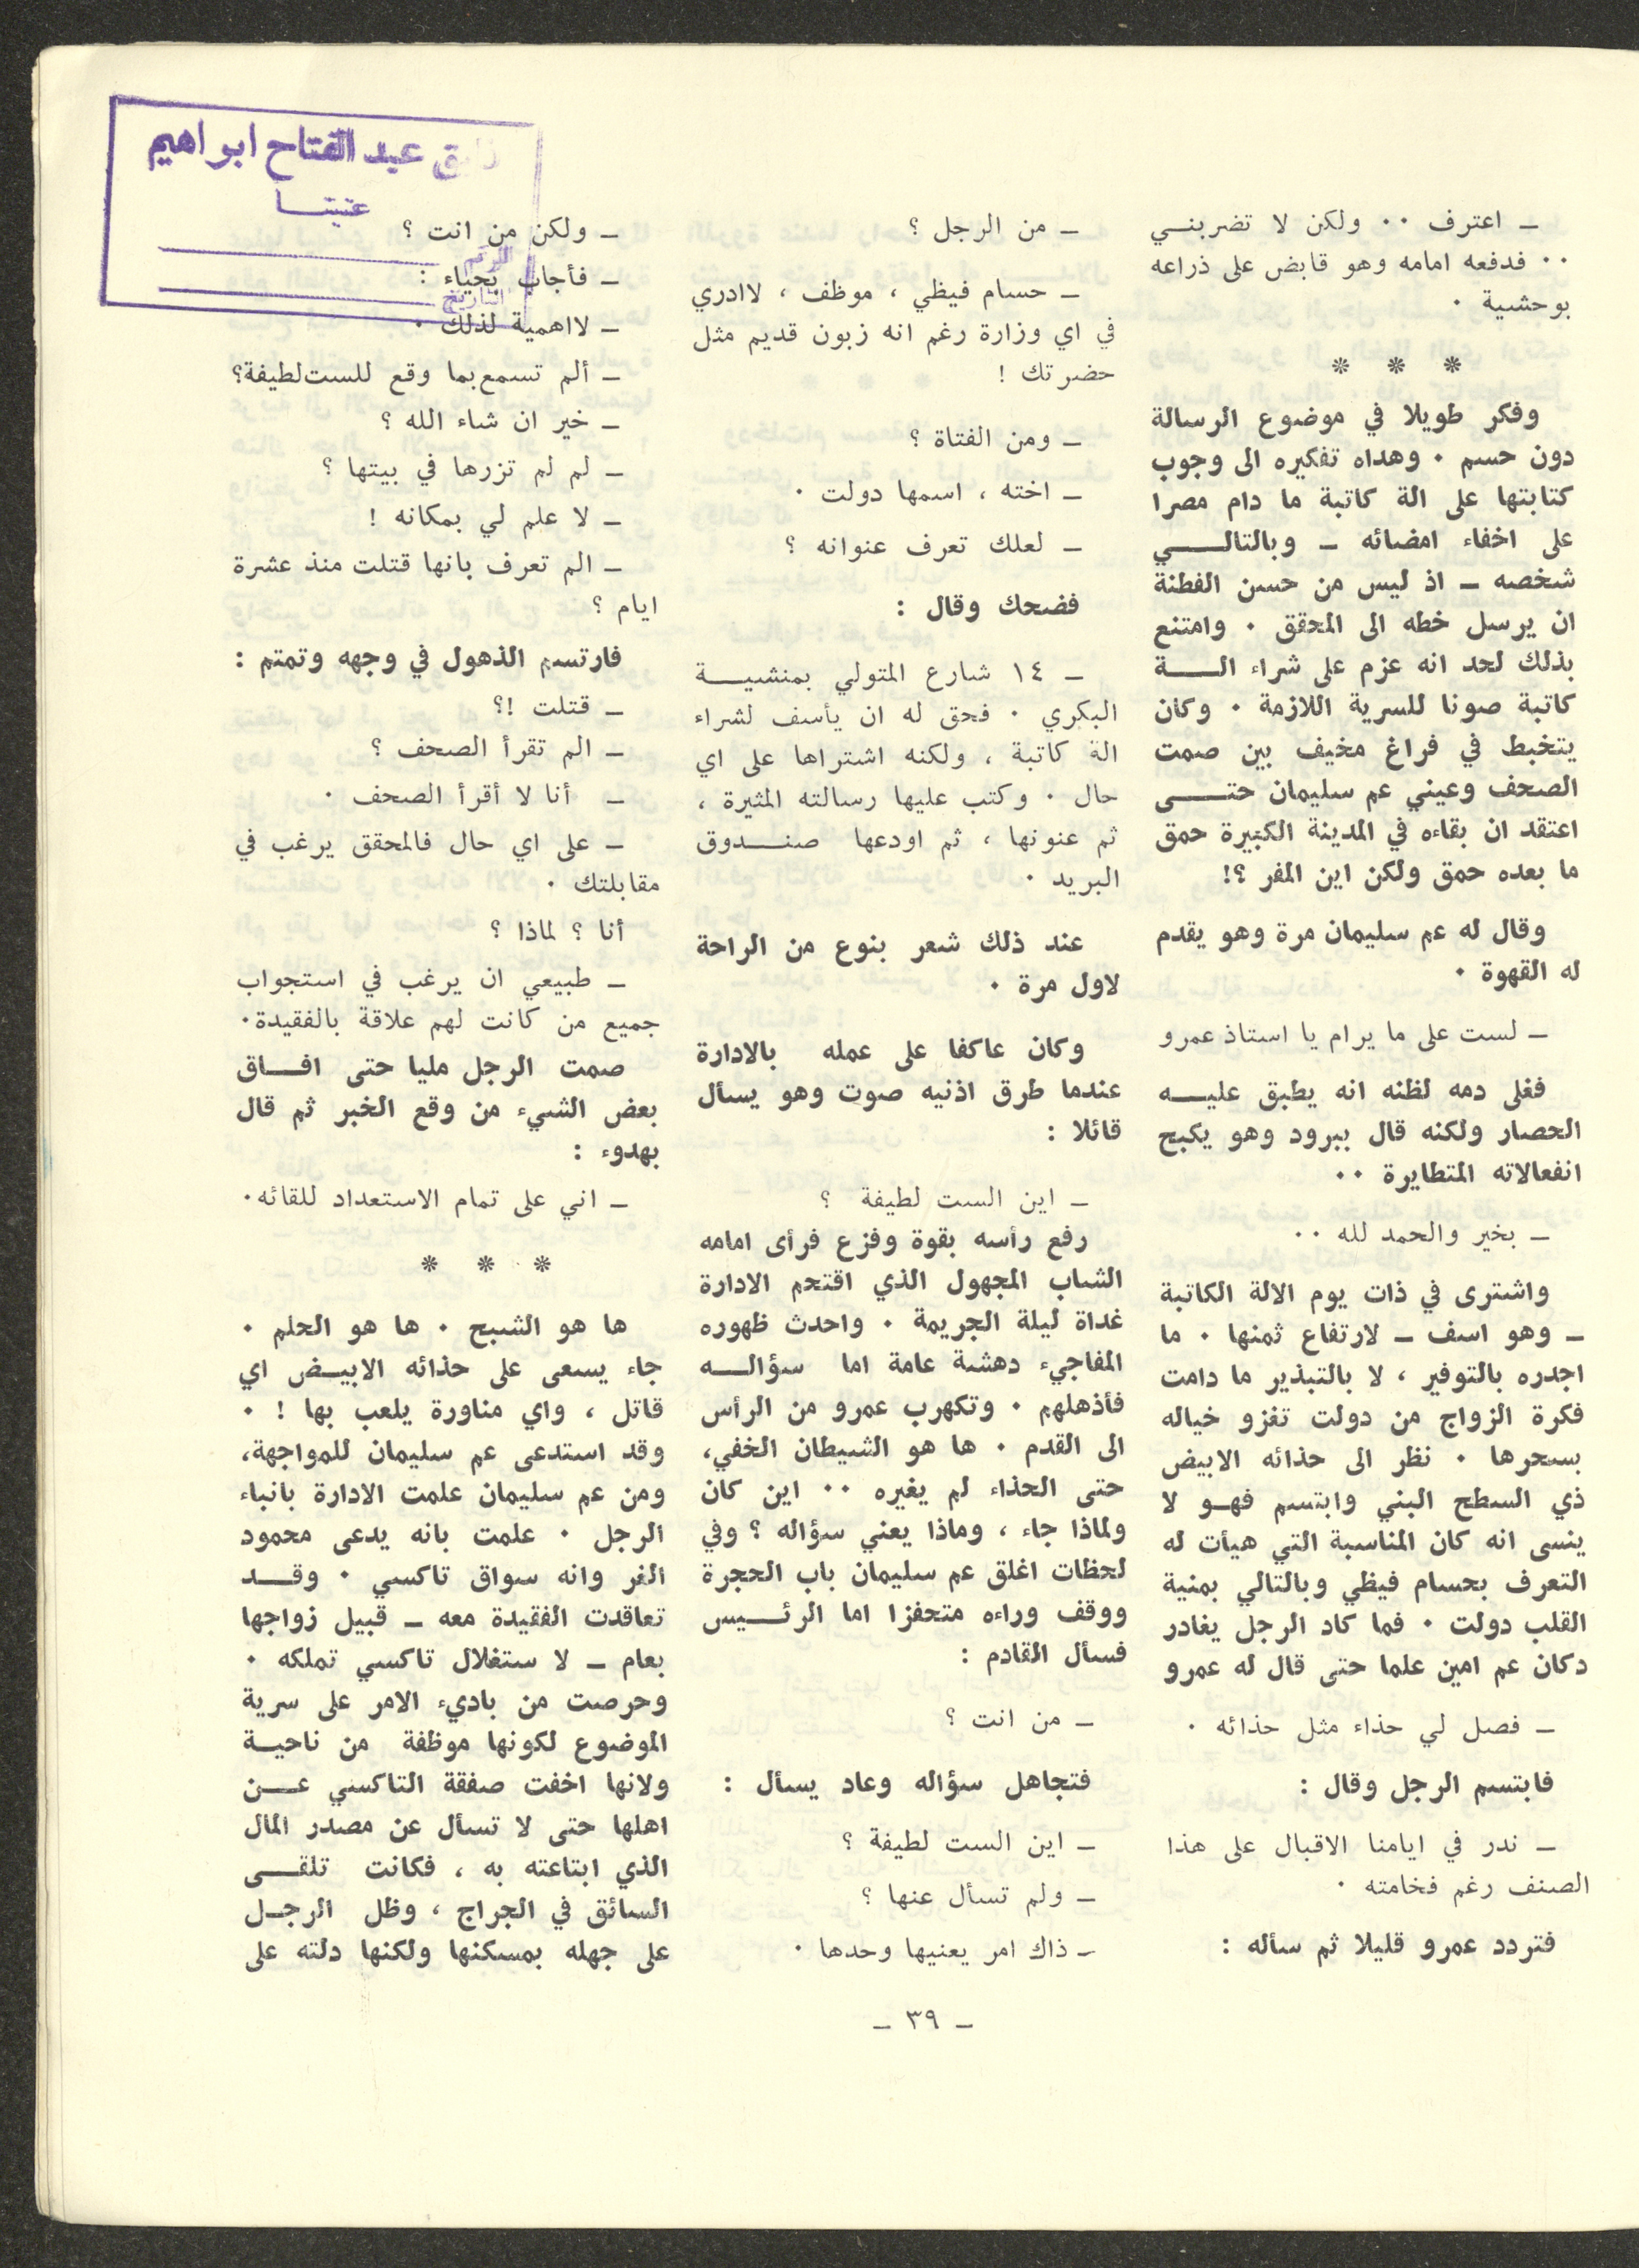 – اعترف ٠٠ ولكن لا تضربنــي
٠٠ فدفعه امامه وهو قابض على ذراعه
بوحشية ٠
* * *
وفكر طويلا في موضوع الرسالة
دون حسم ٠ وهداه تفكيره الى وجوب
كتابتها على الة كاتبة ما دام مصرا
على اخفاء امضائه – وبالتالــــي
شخصه – اذ ليس من حسن الفطنة
ان يرسل خطه الى المحقق ٠ وامتنع
بذلك لحد انه عزم على شراء الــــة
كاتبة صونا للسرية اللازمة ٠ وكان
يتخبط في فراغ مخيف بين صمت
الصحف وعيني عم سليمان حتــــى
اعتقد ان بقاءه في المدينة الكبيرة حمق
ما بعده حمق ولكن اين المفر ؟!
وقال له عم سليمان مرة وهو يقدم
له القهوة ٠
– لست على ما يرام يا استاذ عمرو
فغلى دمه لظنه انه يطبق عليـــه
الحصار ولكنه قال ببرود وهو يكبح
انفعالاته المتطايرة ٠٠
– بخير والحمد لله ٠٠
واشترى في ذات يوم الالة الكاتبة
– وهو اسف – لارتفاع ثمنها ٠ ما
اجدره بالتوفير ، لا بالتبذير ما دامت
فكرة الزواج من دولت تغزو خياله
بسحرها ٠ نظر الى حذائه الابيض
ذي السطح البني وابتسم فهــو لا
ينسى انه كان المناسبة التي هيأت له
التعرف بحسام فيظي وبالتالي بمنية
القلب دولت ٠ فما كاد الرجل يغادر
دكان عم امين علما حتى قال له عمرو
– فصل لي حذاء مثل حذائه ٠
فابتسم الرجل وقال :
– ندر في ايامنا الاقبال على هذا
الصنف رغم فخامته ٠
فتردد عمرو قليلا ثم سأله :
– من الرجل ؟
– حسام فيظي ، موظف ، لاادري
في اي وزارة رغم انه زبون قديم مثل
حضرتك !
– ومن الفتاة ؟
– اخته ، اسمها دولت ٠
– لعلك تعرف عنوانه ؟
فضحك وقال :
– ١٤ شارع المتولي بمنشيـــة
البكري ٠ فحق له ان يأسف لشراء
الة كاتبة ، ولكنه اشتراها على اي
حال ٠ وكتب عليها رسالته المثيرة ،
ثم عنونها ، ثم اودعها صنــدوق
البريد ٠
عند ذلك شعر بنوع من الراحة
لاول مرة ٠
وكان عاكفا على عمله بالادارة
عندما طرق اذنيه صوت وهو يسأل
قائلا :
– اين الست لطيفة ؟
رفع رأسه بقوة وفزع فرأى امامه
الشاب المجهول الذي اقتحم الادارة
غداة ليلة الجريمة ٠ واحدث ظهوره
المفاجيء دهشة عامة اما سؤالــه
فأذهلهم ٠ وتكهرب عمرو من الرأس
الى القدم ٠ ها هو الشيطان الخفي،
حتى الحذاء لم يغيره ٠٠ اين كان
ولماذا جاء ، وماذا يعني سؤاله ؟ وفي
لحظات اغلق عم سليمان باب الحجرة
ووقف وراءه متحفزا اما الرئـــيس
فسأل القادم :
– من انت ؟
فتجاهل سؤاله وعاد يسأل :
– اين الست لطيفة ؟
– ولم تسأل عنها ؟
– ذاك امر يعنيها وحدها ٠
عبد الفتاح ابراهيم
الرقم
التاريخ
– ولكن من انت ؟
– فأجاب بحياء :
– لااهمية لذلك ٠
– ألم تسمع بما وقع للست لطيفة؟
– خير ان شاء الله ؟
– لم لم تزرها في بيتها ؟
– لا علم لي بمكانه !
– الم تعرف بانها قتلت منذ عشرة
ايام ؟
فارتسم الذهول في وجهه وتمتم :
– قتلت !؟
– الم تقرأ الصحف ؟
– أنا لا أقرأ الصحف ٠
– على اي حال فالمحقق يرغب في
مقابلتك ٠
أنا ؟ لماذا ؟
– طبيعي ان يرغب في استجواب
جميع من كانت لهم علاقة بالفقيدة٠
صمت الرجل مليا حتى افــاق
بعض الشيء من وقع الخبر ثم قال
بهدوء :
– اني على تمام الاستعداد للقائه٠
* * *
ها هو الشبح ٠ ها هو الحلم ٠
جاء يسعى على حذائه الابيــض اي
قاتل ، واي مناورة يلعب بها ! ٠
وقد استدعى عم سليمان للمواجهة،
ومن عم سليمان علمت الادارة بانباء
الرجل ٠ علمت بانه يدعى محمود
الغر وانه سواق تاكسي ٠ وقـــد
تعاقدت الفقيدة معه – قبيل زواجها
بعام – لا ستغلال تاكسي تملكه ٠
وحرصت من باديء الامر على سرية
الموضوع لكونها موظفة من ناحيــة
ولانها اخفت صفقة التاكسي عـــن
اهلها حتى لا تسأل عن مصدر المال
الذي ابتاعته به ، فكانت تلقـــى
السائق في الجراج ، وظل الرجـل
على جهله بمسكنها ولكنها دلته على
– ٣٩ –